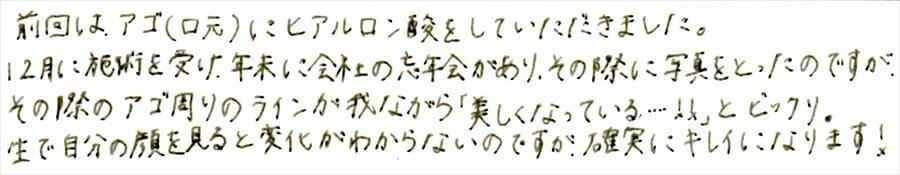 前回は、アゴ(口元)にヒアルロン酸をしていただきました。
12月に施術を受け、年末に会社の忘年会があり、その際に写真をとったのですが、
その際のアゴ周りのラインが我ながら「美しくなっている…!!」とビックリ。
生で自分の顔を見ると変化がわからないのですが、確実にキレイになります!